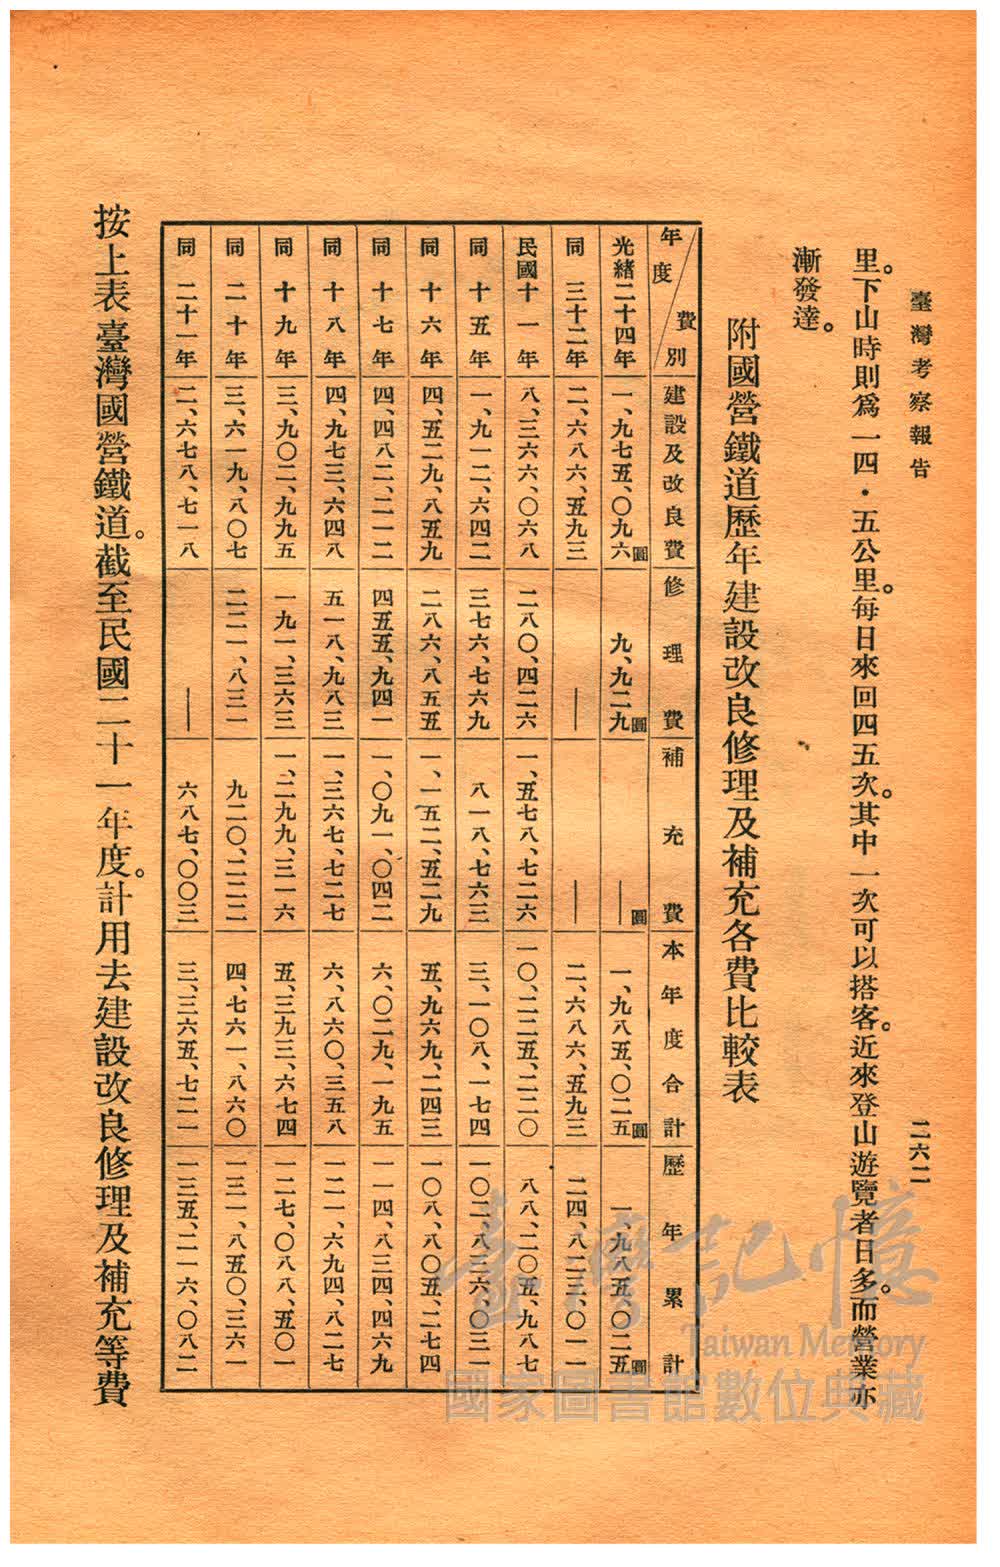 臺灣考察報告
二六二
里。下山時則爲一四・五公里。每日來回四五次。其中一次可以搭客。近來登山遊覽者日多。而營業亦
漸發達。
附國營鐵道歷年建設改良修理及補充各費比較表
年度 費別 建設及改良費 修理費 補充費 本年度合計 歷年累計
光緒二十四年 一、九七五、〇九六圓 九、九二九圓 ——圓 一、九八五、〇二五圓 一、九八五、〇二五圓
同 三十二年 二、六八六、五九三 —— —— 二、六八六、五九三 二四、八二三、〇一一
民國十一年 八、三六六、〇六八 二八〇、四二六 一、五七八、七二六 一〇、二二五、二二〇 八八、二〇五、九八七
同 十五年 一、九一二、六四二 三七六、七六九 八一八、七六三 三、一〇八、一七四 一〇二、八三六、〇三一
同 十六年 四、五二九、八五九 二八六、八五五 一、一五二、五二九 五、九六九、二四三 一〇八、八〇五、二七四
同 十七年 四、四八二、二一二 四五五、九四一 一、〇九一、〇四二 六、〇二九、一九五 一一四、八三四、四六九
同 十八年 四、九七三、六四八 五一八、九八三 一、三六七、七二七 六、八六〇、三五八 一二一、六九四、八二七
同 十九年 三、九〇二、九九五 一九一、三六三 一、二九九、三一六 五、三九三、六七四 一二七、〇八八、五〇一
同 二十年 三、六一九、八〇七 二二一、八三一 九二〇、二二二 四、七六一、八六〇 一三一、八五〇、三六一
同 二十一年 二、六七八、七一八 —— 六八七、〇〇三 三、三六五、七二一 一三五、二一六、〇八二
按上表臺灣國營鐵道。截至民國二十一年度。計用去建設改良修理及補充等費
臺灣記憶
Taiwan Memory
國家圖書館數位典藏